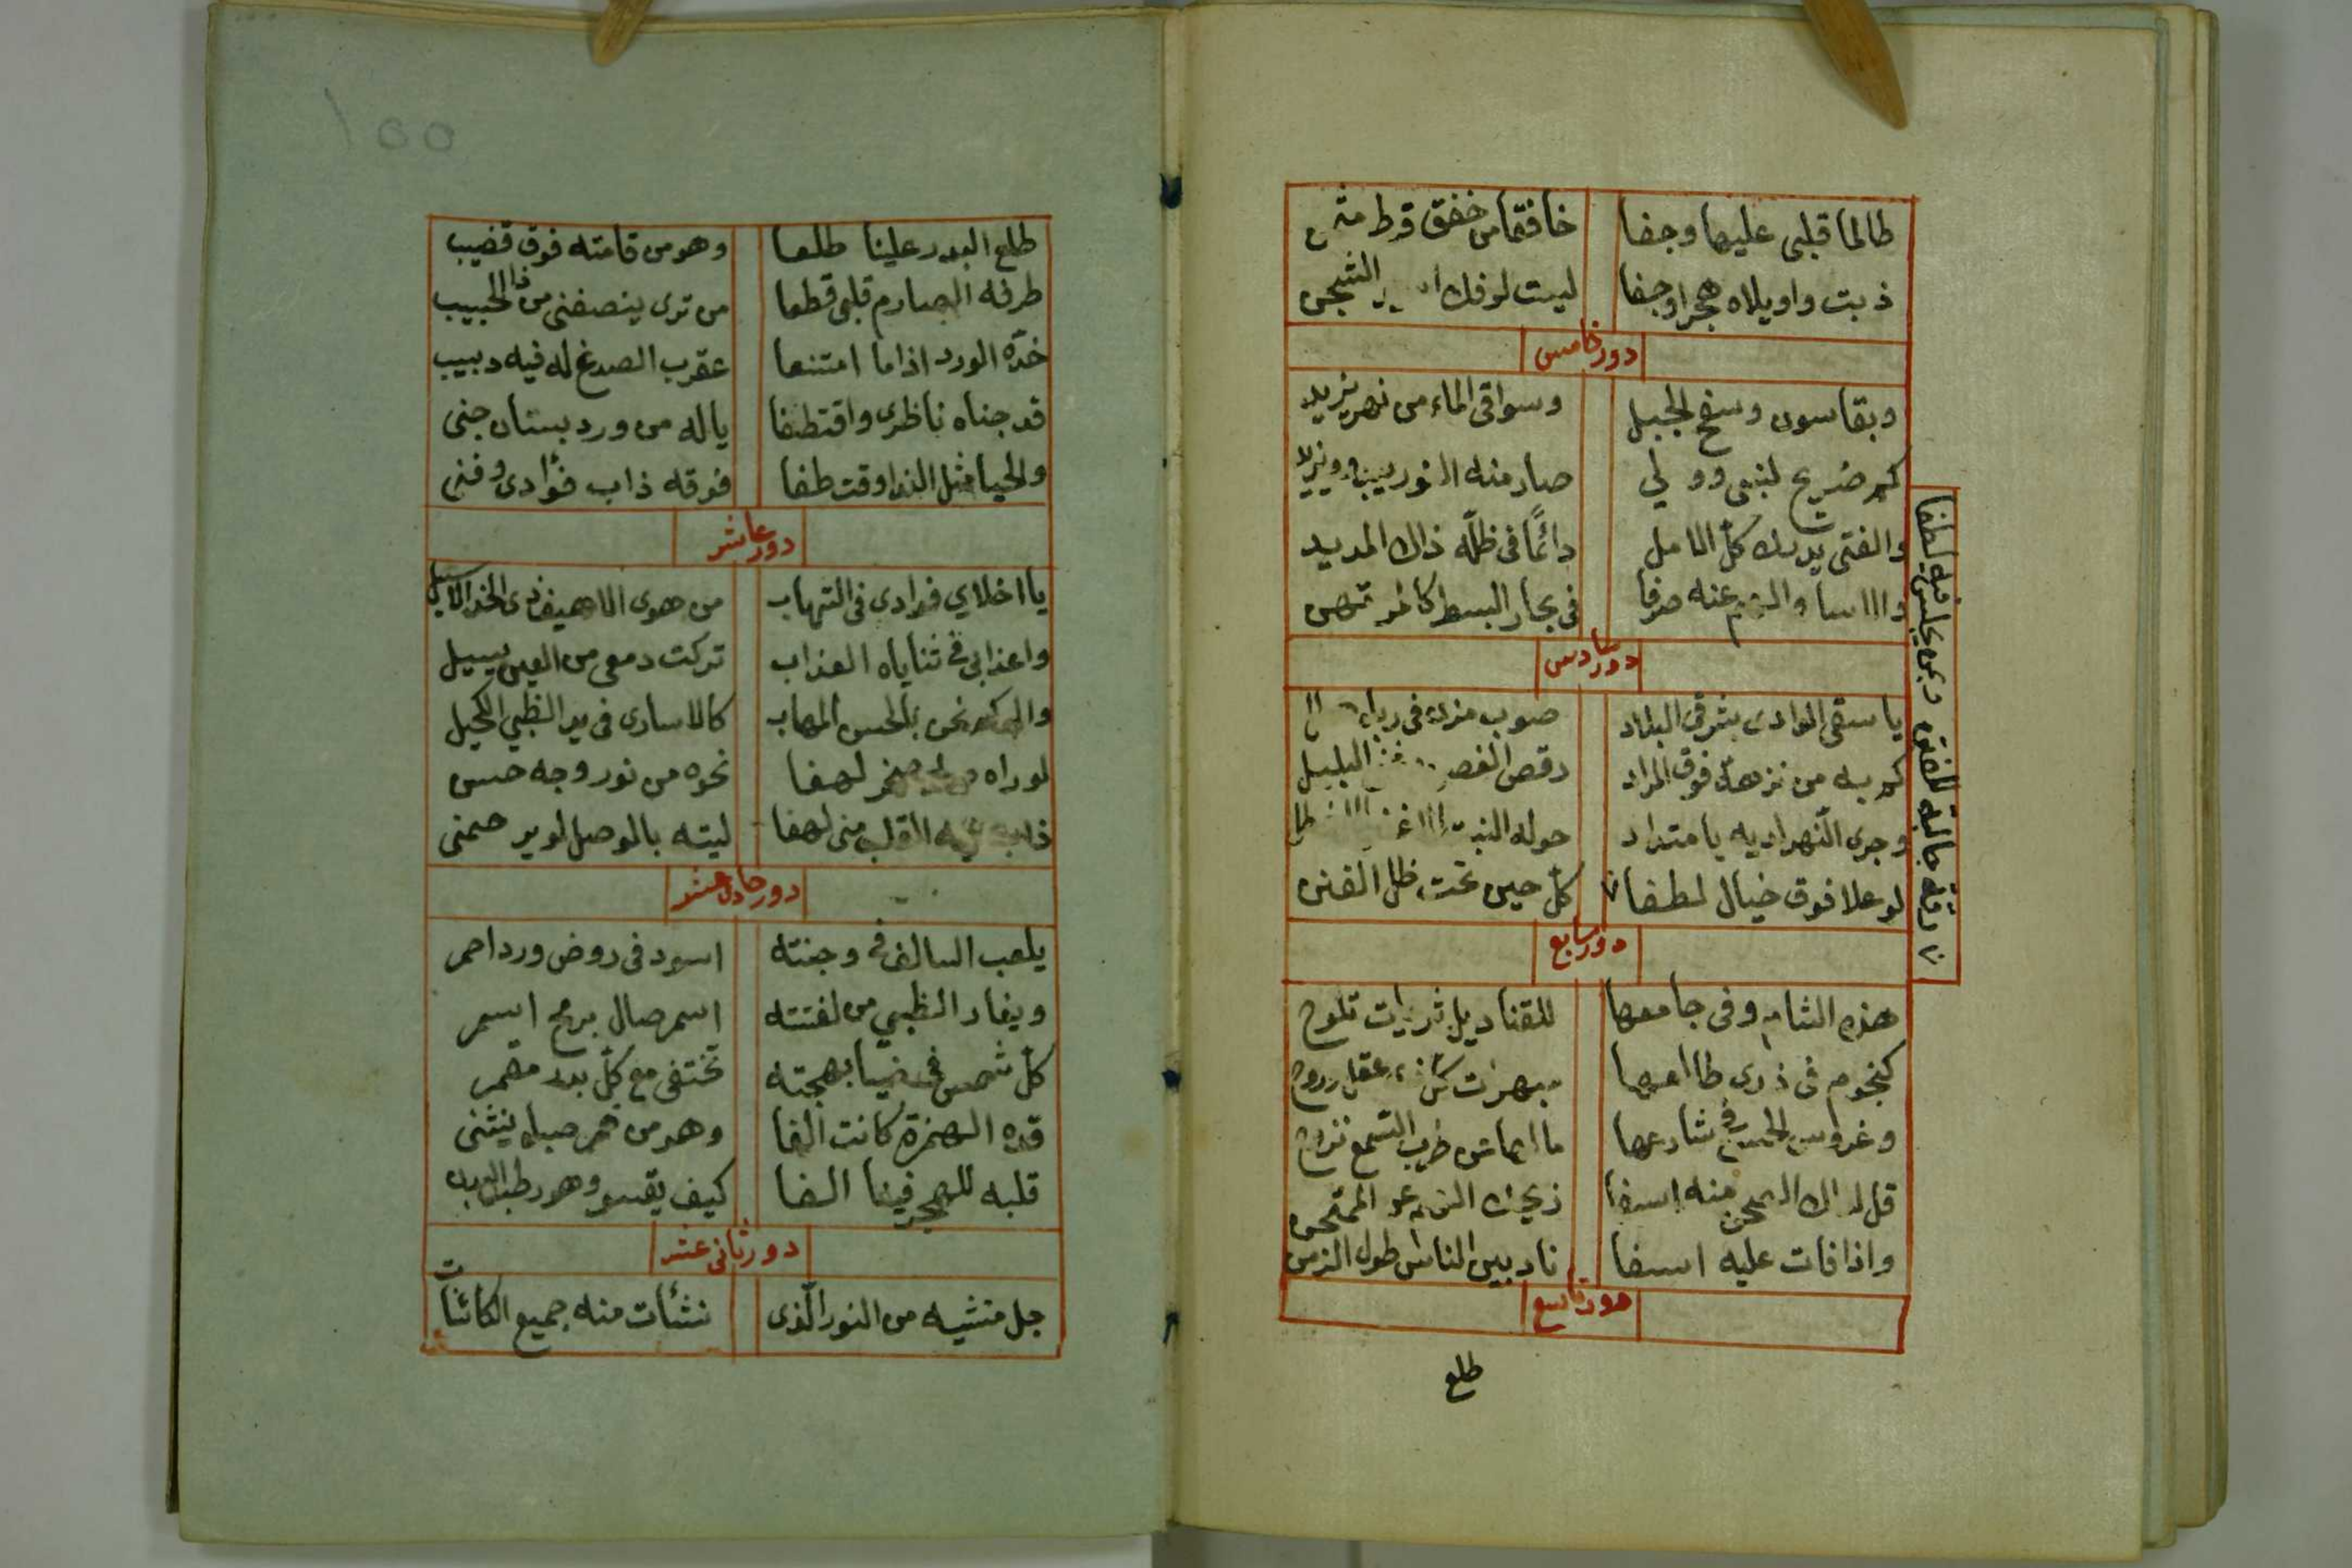 طالما قلبى عليها وجفا خافقا من خفق قرط
ذبت واويلاه هجرا وجفا ليت لوفك الشجن
دور خامس
وبقاسون وسفح الجبل وسواقى الماء من نهر يزيد
كم ضريح لنبى وولي صار منه النور
والفتى يدرك كل الامل دائمًا فى ظلّه ذاك المديد
عنه صرفا فى بحار البسط
دور سادس
يا سقى الوادى بشرقى البلاد صوب مزنة فى
كم به من نزهة فوق المراد رقص البليل
وجرى النهر اديه يا متداد حوله
لو علا فوق خيال لطفا كلّ حين تحت ظل الفنن
رقة حالية للفتن وبمن يجلس فيه لطفا
دور سابع
هذه الشام وفى جامعها للقناديل ثريات تلوح
كنجوم فى ذرى طالعها بهرت عقل وروح
وعروس الحسن فى شارعها
قل منه اسفا
واذا فات عليه اسفا ناد بين الناس طول الزمن
دور تاسع
طلع
١٥٥
طلع البدر علينا طلعا وهو من قامته فوق قضيب
طرفه الصارم قلبى قطعا من ترى ينصفنى من ذا الحبيب
خدّه الورد اذا ما امتنعا عقرب الصدغ له فيه دبيب
قد جناه ناظرى واقتطفا ياله من ورد بستان جنى
والحيا مثل الندا وقت طفا فوقه ذاب فؤادى وفنى
دور عاشر
يا اخلاي فوادى فى التهاب من هوى الاهيف ذى الخد الاسيل
واعذابى فى ثناياه العذاب تركت دمعى من العين يسيل
نحن بالحسن المهاب كالاسارى فى يد الظبي الكحيل
لو راه صخر لهفا نحوه من نور وجه حسن
ذاب القلب منى لهفا ليته بالوصل لو يرحمنى
دور حادى عشر
يلعب السالف فى وجنته اسود فى روض ورد احمر
ويغار الظبي من لفتته اسمر صال برمح اسمر
كلّ شمس فى ضيا بهجته تختفى مع كلّ بدر مقمر
قده الهمزة كانت الفا وهو من خمر صباه ينثنى
قلبه للهجر فينا الفا كيف يقسو وهو رطب البدن
دور ثانى عشر
جل منشيه من النور الّذى نشأت منه جميع الكائنات